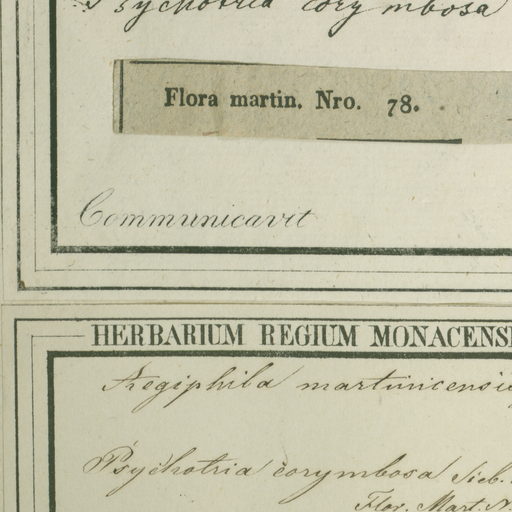 Psychotria corymbosa
Flora martin. Nro. 78.
Communicavit
HERBARIUM REGIUM MONACENS
Aegiphila martinicensis
Psychotria corymbosa Sieb.
Flor. Mart. N.